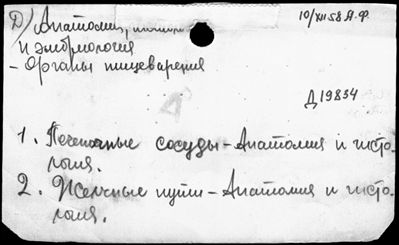 Д) Анатомия,
10/XII 58 А.Ф.
и эмбриология
- Органы пищеварения
Д 19834
1. Печеночные сосуды - Анатомия и гисто-
логия.
2. Желчные пути - Анатомия и гисто-
логия.